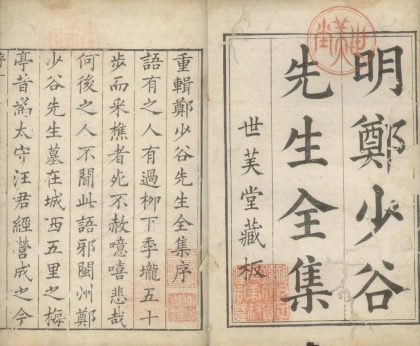 明鄭少谷
先生全集
世芙堂藏板
重輯鄭少谷先生全集序
語有之人有過柳下季壠五十
步而采樵者死不赦噫嘻悲哉
何後之人不聞此語邪閩州鄭
少谷先生墓在城西五里之梅
亭昔為太守汪君經營成之今